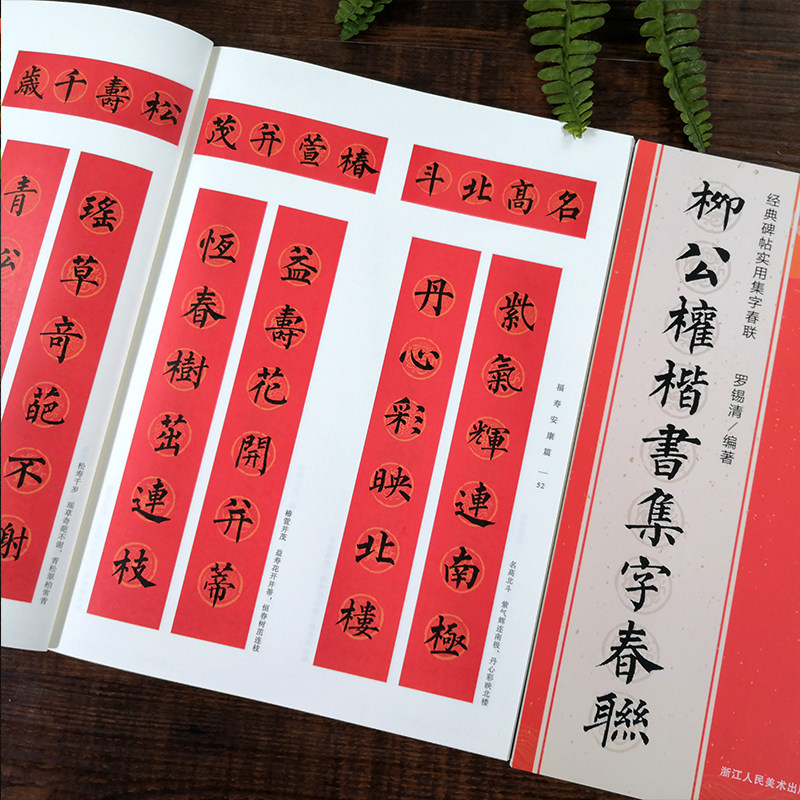 松壽千歲
瑤草奇葩不謝
青
松寿千岁 瑶草奇葩不谢，青松翠柏常青
名高北斗
紫氣輝連南極
丹心彩映北樓
椿萱并茂
益壽花開并蒂
恆春樹茁連枝
福寿安康篇 — 52
名高北斗 紫气辉连南极，丹心彩映北楼
椿萱并茂 益寿花开并蒂，恒春树茁连枝
经典碑帖实用集字春联
罗锡清/编著
柳公權楷書集字春聯
浙江人民美术出